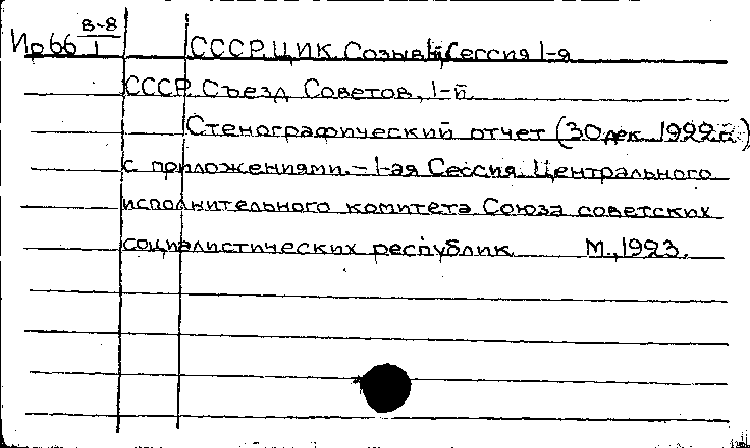 Ир66 В-8/1 СССР. ЦИК. Созыв I-й, Сессия 1-я
СССР. Съезд Советов, 1-й.
Стенографический отчет (30 дек. 1922 г.)
с приложениями. – 1-ая Сессия Центрального
исполнительного комитета Союза советских
социалистических республик. М., 1923.